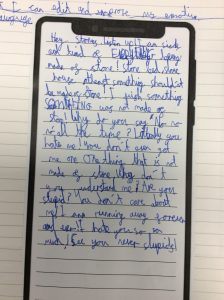 I can edit and improve my emotive
language
Hey stones listen up! I am sick
and kind of
made of stone! stone bed, stone
house, almost something should not
be made of stone! I wish something
SOMETHING was not made of
stone! Why do you say No no
no all the time? Actually you
hate me! You don't even get
me one ONE thing that is not
made of stone. Why don't
you understand me! Are you
stupid? You don't care about
me! I am running away forever
and ever! I hate you so so
much! See you never stupids!